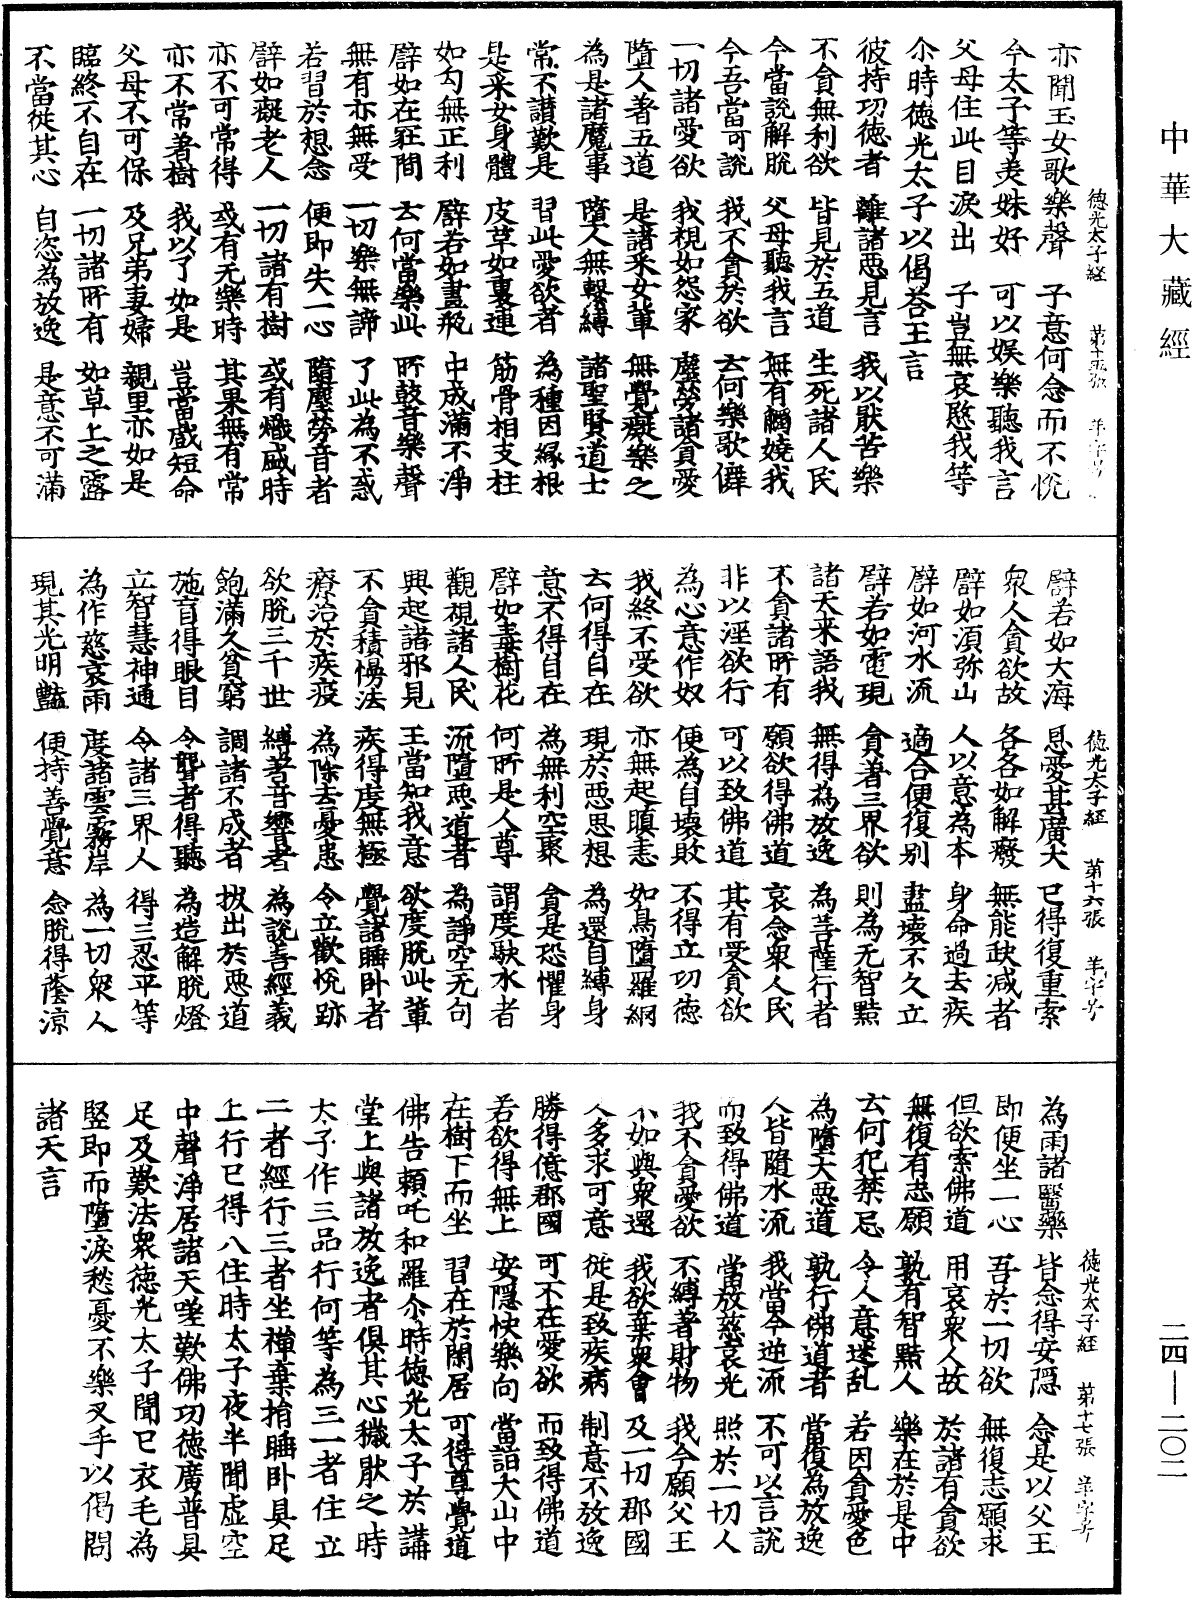 中華大藏經
二四—二〇二
德光太子經 第十五張 羊字号
亦聞玉女歌樂聲 子意何念而不悅
今太子等美妹好 可以娛樂聽我言
父母住此目淚出 子豈無哀愍我等
尒時德光太子以偈荅王言
彼持功德者 離諸惡見言 我以猒苦樂
不貪無利欲 皆見於五道 生死諸人民
今當說解脫 父母聽我言 無有觸嬈我
今吾當可說 我不貪於欲 云何樂歌儛
一切諸愛欲 我視如怨家 塵勞諸貪愛
墮人著五道 是諸采女軰 無覺癡樂之
為是諸魔事 墮人無繫縛 諸聖賢道士
常不讃歎是 習此愛欲者 為種因緣根
是采女身體 皮草如裹連 筋骨相支柱
如勾無正利 譬若如畫瓶 中成滿不淨
譬如在冢間 云何當樂此 所鼓音樂聲
無有亦無受 一切樂無諦 了此為不惑
若習於想念 便即失一心 隨塵勞音者
譬如癡老人 一切諸有樹 或有熾盛時
亦不可常得 或有无樂時 其果無有常
亦不常著樹 我以了如是 豈當戲短命
父母不可保 及兄弟妻婦 親里亦如是
臨終不自在 一切諸所有 如草上之露
不當從其心 自恣為放逸 是意不可滿
德光太子經 第十六張 羊字号
譬若如大海 恩愛甚廣大 已得復重索
衆人貪欲故 各各如解癈 無能缺減者
譬如須弥山 人以意為本 身命過去疾
譬如河水流 適合便復别 盡壞不久立
譬若如電現 貪著三界欲 則為无智黠
諸天来語我 無得為放逸 為菩薩行者
不貪諸所有 願欲得佛道 哀念衆人民
非以淫欲行 可以致佛道 其有受貪欲
為心意作奴 便為自壞敗 不得立功德
我終不受欲 亦無起瞋恚 如鳥墮羅網
云何得自在 現於惡思想 為還自縛身
意不得自在 為無利空聚 貪是恐懼身
譬如毒樹花 何所是人尊 謂度駃水者
觀視諸人民 流墮惡道者 為諍空无句
興起諸邪見 王當知我意 欲度脫此軰
不貪積愓法 疾得度無極 覺諸睡卧者
療治於疾疫 為除去憂患 令立歡悅跡
欲脫三千世 縛著音響者 為說善經義
飽滿久貧窮 調諸不成者 拔出於惡道
施盲得眼目 令聾者得聽 為造解脫燈
立智慧神通 令諸三界人 得三忍平等
為作慈哀雨 度諸雲霧岸 為一切衆人
現其光明豔 便持善覺意 念脫得蔭凉
德光太子經 第十七張 羊字号
為雨諸醫藥 皆念得安隱 念是以父王
即便坐一心 吾於一切欲 無復志願求
但欲索佛道 用哀衆人故 於諸有貪欲
無復有志願 孰有智黠人 樂在於是中
云何犯禁忌 令人意迷乱 若因貪愛色
為墮大惡道 孰行佛道者 當復為放逸
人皆隨水流 我當今逆流 不可以言說
而致得佛道 當放慈哀光 照於一切人
我不貪愛欲 不縛著財物 我今願父王
不如與衆還 我欲棄衆會 及一切郡國
人多求可意 從是致疾病 制意不放逸
勝得億郡國 可不在愛欲 而致得佛道
若欲得無上 安隱快樂向 當詣大山中
在樹下而坐 習在於閑居 可得尊覺道
佛告賴吒和羅尒時德光太子於講
堂上與諸放逸者俱其心穢猒之時
太子作三品行何等為三一者住立
二者經行三者坐禪棄捐睡卧具足
上行已得八住時太子夜半聞虛空
中聲淨居諸天嗟歎佛功德廣普具
足及歎法衆德光太子聞已衣毛為
竪即而墮淚愁憂不樂叉手以偈問
諸天言